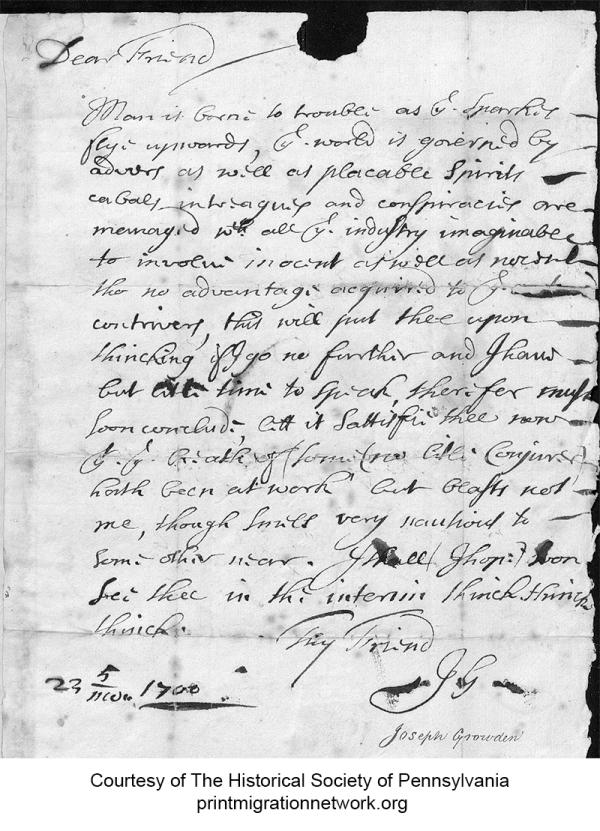 Dear Friend
Man is borne to trouble as yᵉ sparkes
flye upwards, yᵉ world is governed by
advers as well as placable Spirits
cabals intreagues and conspiracies are
menaged wᵗʰ all yᵉ industry imaginable
to involve inocent as well as nocent
tho no advantage acquired to yᵉ
contrivers, this will put thee upon
thincking if I go no further and I have
but litle time to speak, therefor must
soon conclude, lett it sattisfie thee now
yᵗ yᵉ breath of (some (no litle Conjurer)
hath been at work but blasts not
me, though smels very nautious to
some other near. I shall (I hope) soon
see thee in the interim thinck thinck
thinck.
Thy Friend
23 5/mo. 1700
JG
Joseph Growden
Courtesy of The Historical Society of Pennsylvania
printmigrationnetwork.org